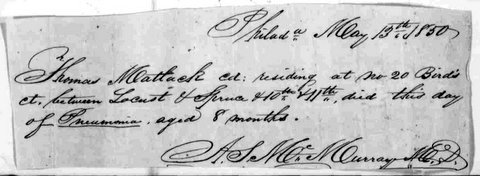 Philada May 13th 1850
Thomas Matlack cd: residing at no 20 Bird's
ct. between Locust & Spruce & 10th & 11th, died this day
of Pneumonia, aged 8 months.
A. S. Mc Murray M.D.